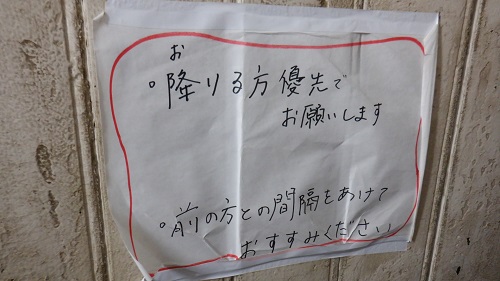 お
。降りる方優先で
お願いします
。前の方との間隔をあけて
おすすみください